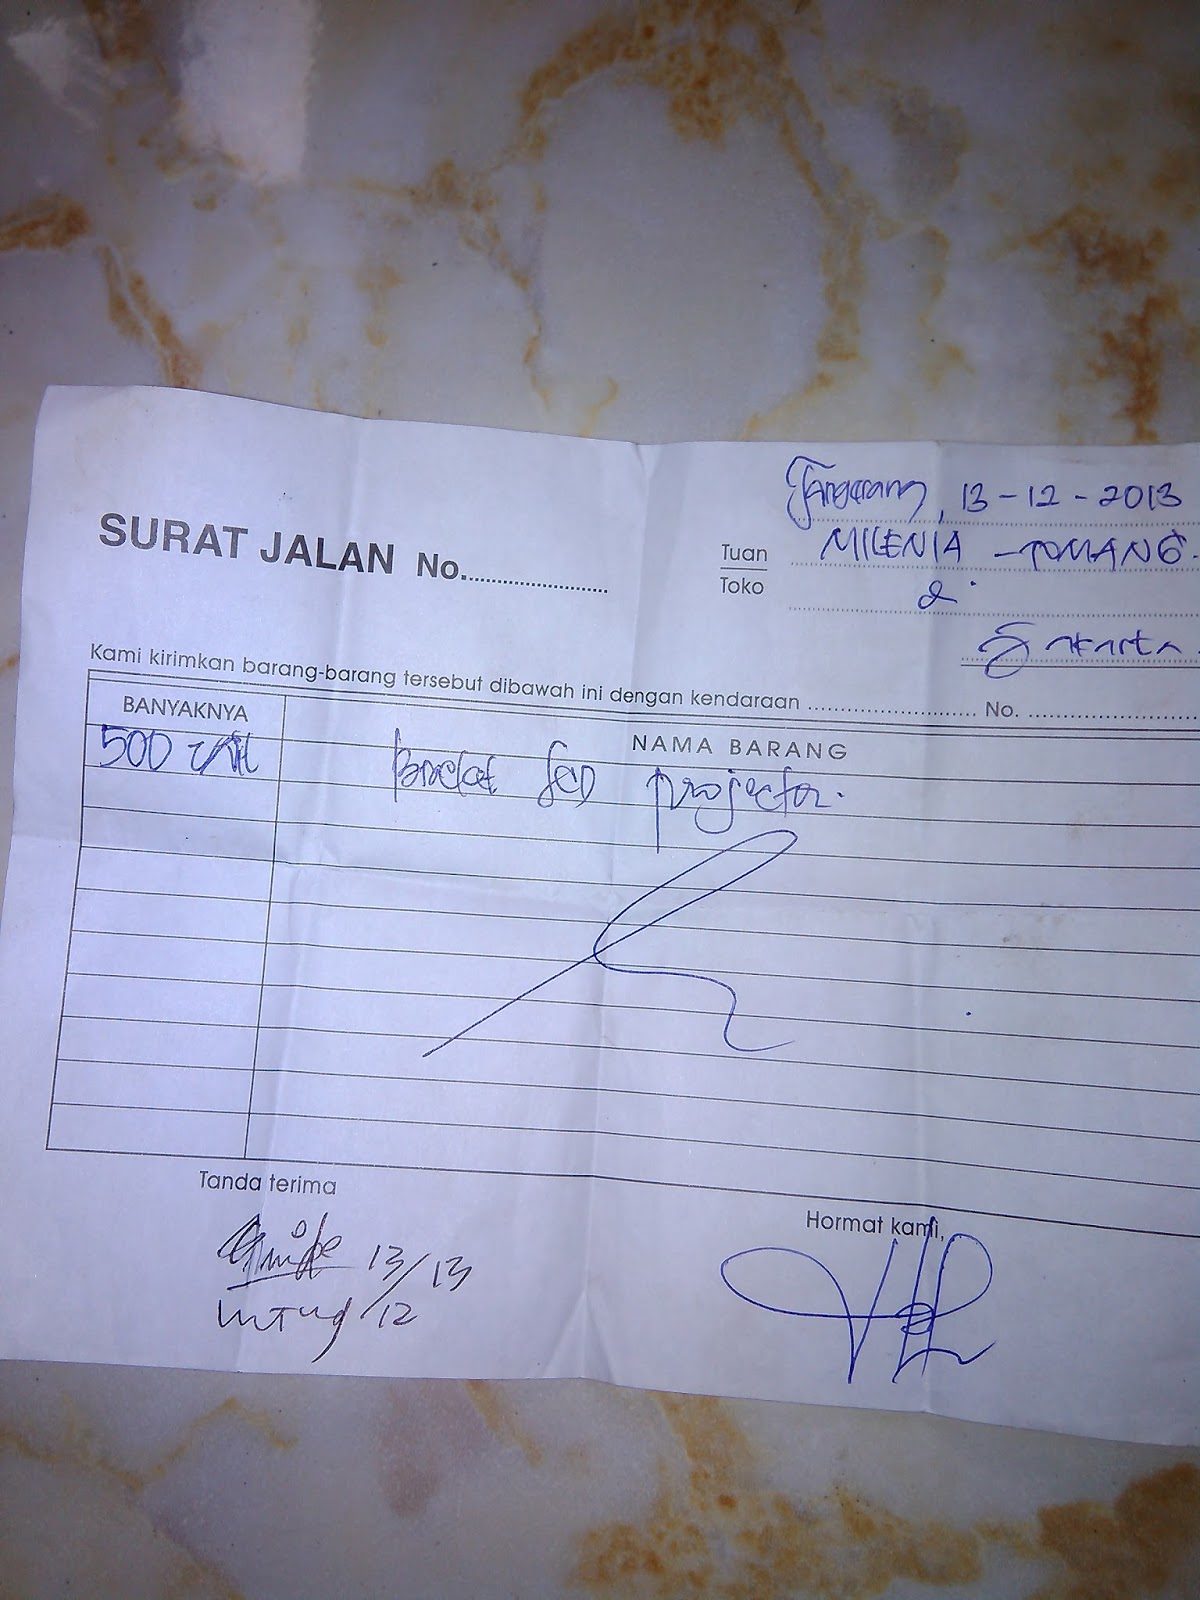 Tangerang, 13-12-2013
SURAT JALAN No.....................
Tuan
Toko
MILENIA - TOMANG.
di
Jakarta.
Kami kirimkan barang-barang tersebut dibawah ini dengan kendaraan .......................... No. ..........................
BANYAKNYA NAMA BARANG
500 Bracket LCD projector.
Tanda terima
13/12 13
Hormat kami,